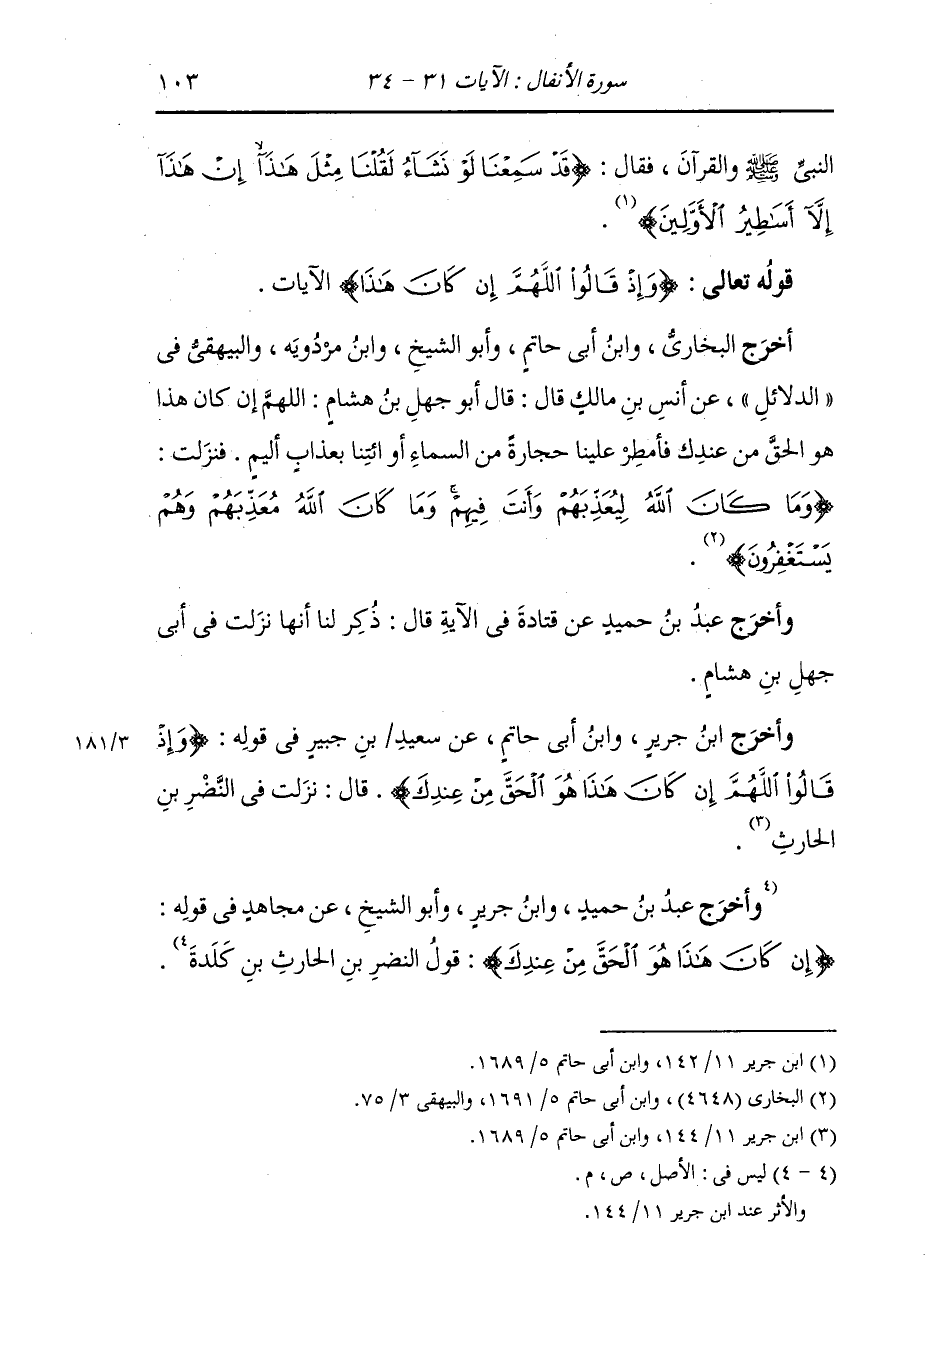 سورة الأنفال : الآيات ٣١ - ٣٤
١٠٣
النبىِّ ﷺ والقرآنَ ، فقال : ﴿قَدْ سَمِعْنَا لَوْ نَشَآءُ لَقُلْنَا مِثْلَ هَٰذَآ ۙ إِنْ هَٰذَآ
إِلَّآ أَسَٰطِيرُ ٱلْأَوَّلِينَ﴾(١) .
قولُه تعالى : ﴿وَإِذْ قَالُوا۟ ٱللَّهُمَّ إِن كَانَ هَٰذَا﴾ الآيات .
أخرَج البخارىُّ ، وابنُ أبى حاتمٍ ، وأبو الشيخِ ، وابنُ مرْدُويَه ، والبيهقىُّ فى
« الدلائلِ » ، عن أنسِ بنِ مالكٍ قال : قال أبو جهلِ بنُ هشامٍ : اللهمَّ إن كان هذا
هو الحقَّ من عندِك فأمطِرْ علينا حجارةً من السماءِ أو ائتِنا بعذابٍ أليمٍ . فنزَلت :
﴿وَمَا كَانَ ٱللَّهُ لِيُعَذِّبَهُمْ وَأَنتَ فِيهِمْ ۚ وَمَا كَانَ ٱللَّهُ مُعَذِّبَهُمْ وَهُمْ
يَسْتَغْفِرُونَ﴾(٢) .
وأخرَج عبدُ بنُ حميدٍ عن قتادةَ فى الآيةِ قال : ذُكِر لنا أنها نزَلت فى أبى
جهلِ بنِ هشامٍ .
وأخرَج ابنُ جريرٍ ، وابنُ أبى حاتمٍ ، عن سعيدِ/ بنِ جبيرٍ فى قولِه : ﴿وَإِذْ
١٨١/٣
قَالُوا۟ ٱللَّهُمَّ إِن كَانَ هَٰذَا هُوَ ٱلْحَقَّ مِنْ عِندِكَ﴾ . قال : نزَلت فى النَّضْرِ بنِ
الحارثِ(٣) .
(٤وأخرَج عبدُ بنُ حميدٍ ، وابنُ جريرٍ ، وأبو الشيخِ ، عن مجاهدٍ فى قولِه :
﴿إِن كَانَ هَٰذَا هُوَ ٱلْحَقَّ مِنْ عِندِكَ﴾ : قولُ النضرِ بنِ الحارثِ بنِ كَلَدةَ٤) .
(١) ابن جرير ١١/ ١٤٢، وابن أبى حاتم ٥/ ١٦٨٩.
(٢) البخارى (٤٦٤٨) ، وابن أبى حاتم ٥/ ١٦٩١، والبيهقى ٣/ ٧٥.
(٣) ابن جرير ١١/ ١٤٤، وابن أبى حاتم ٥/ ١٦٨٩.
(٤ - ٤) ليس فى : الأصل ، ص ، م .
والأثر عند ابن جرير ١١/ ١٤٤.